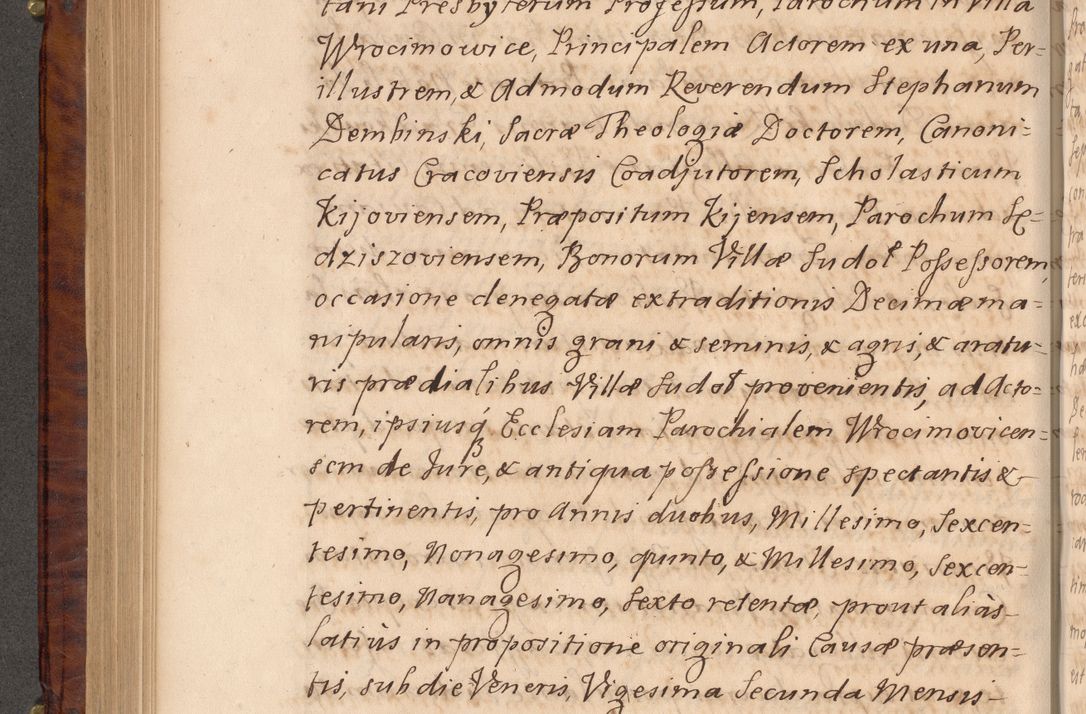 tani Presbyterum Professum, Parochum in Villa
Wrocimowice, Principalem Actorem ex una, Per=
illustrem, & Admodum Reverendum Stephanum
Dembinski, Sacræ Theologiæ Doctorem, Canoni=
catus Cracoviensis Coadjutorem, Scholasticum
Kijoviensem, Præpositum Kijensem, Parochum Sę=
dziszoviensem, Bonorum Villæ Sudoł Possessorem,
occasione denegatæ extraditionis Decimæ ma=
nipularis, omnis grani & seminis, & agris, & aratu=
ris prædialibus Villæ Sudoł provenientis, ad Acto=
rem, ipsiusq́ Ecclesiam Parochialem Wrocimovicen=
sem de Jure, & antiqua possessione spectantis &
pertinentis, pro Annis duobus, Millesimo, Sexcen=
tesimo, Nonagesimo, quinto, & Millesimo, Sexcen=
tesimo, Nanagesimo, Sexto retentæ, prout aliàs
latiùs in propositione originali Causæ præsen=
tis, sub die Veneris, Vigesima Secunda Mensis